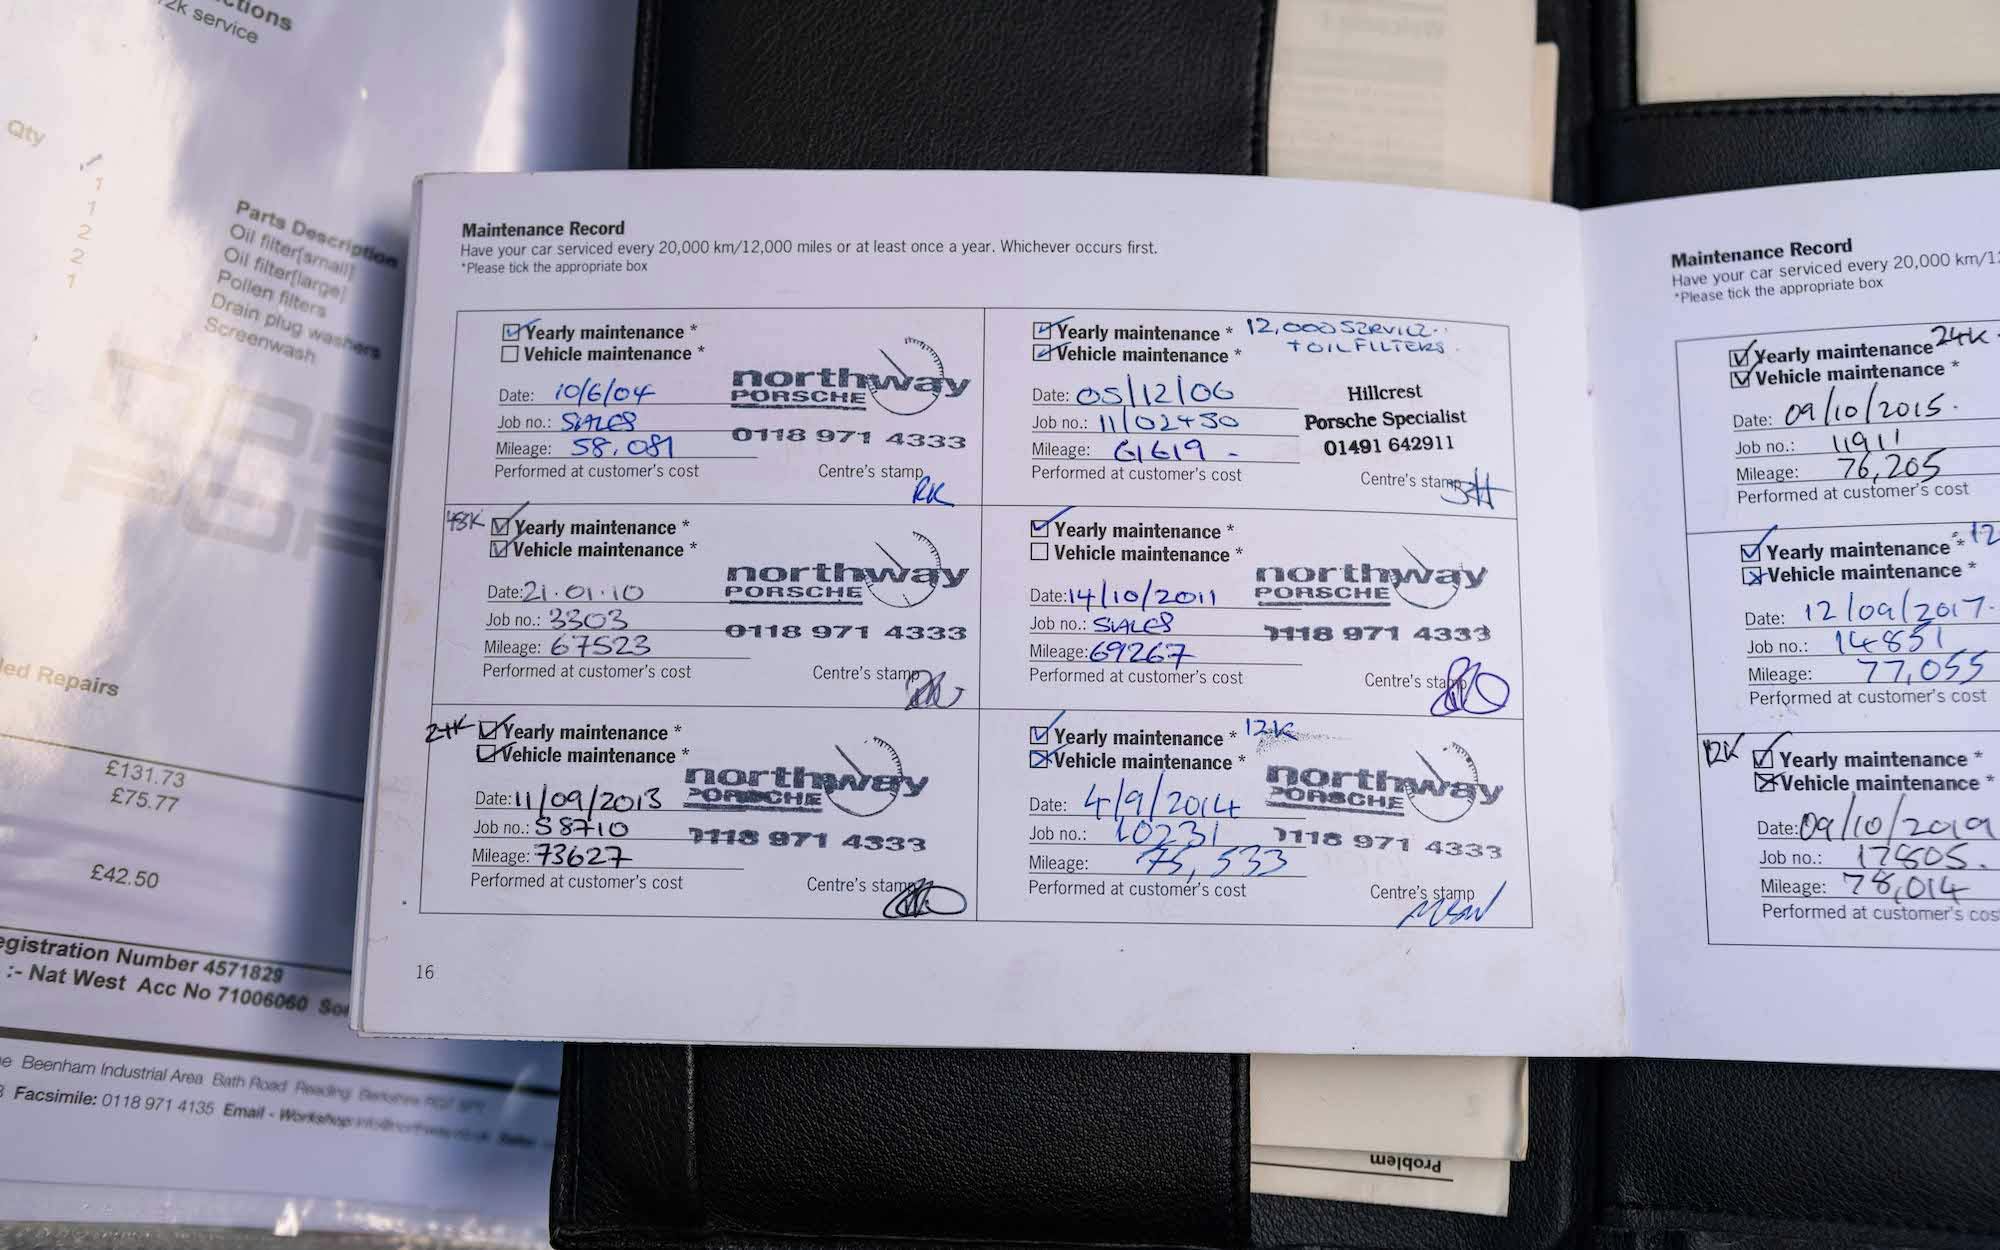 ctions
2k service
Qty
1
1
2
2
1
Parts Description
Oil filter[small]
Oil filter[large]
Pollen filters
Drain plug washers
Screenwash
led Repairs
£131.73
£75.77
£42.50
egistration Number 4571829
:- Nat West Acc No 71006060
Beenham Industrial Area Bath Road Reading Berkshire
Facsimile: 0118 971 4135 Email - Workshop
Maintenance Record
Have your car serviced every 20,000 km/12,000 miles or at least once a year. Whichever occurs first.
*Please tick the appropriate box
Yearly maintenance *
Vehicle maintenance *
Date: 10/6/04
Job no.: SALES
Mileage: 58,081
Performed at customer's cost
Centre's stamp
northway
PORSCHE
0118 971 4333
RK
Yearly maintenance * 12,000 SERVICE
+ OIL FILTERS.
Vehicle maintenance *
Date: 05/12/06
Job no.: 11/02450
Mileage: 61619 -
Performed at customer's cost
Centre's stamp
Hillcrest
Porsche Specialist
01491 642911
48K Yearly maintenance *
Vehicle maintenance *
Date: 21.01.10
Job no.: 3303
Mileage: 67523
Performed at customer's cost
Centre's stamp
northway
PORSCHE
0118 971 4333
Yearly maintenance *
Vehicle maintenance *
Date: 14/10/2011
Job no.: SALES
Mileage: 69267
Performed at customer's cost
Centre's stamp
northway
PORSCHE
0118 971 4333
24K Yearly maintenance *
Vehicle maintenance *
Date: 11/09/2013
Job no.: S8710
Mileage: 73627
Performed at customer's cost
Centre's stamp
northway
PORSCHE
0118 971 4333
Yearly maintenance * 12K
Vehicle maintenance *
Date: 4/9/2014
Job no.: 10231
Mileage: 75,533
Performed at customer's cost
Centre's stamp
northway
PORSCHE
0118 971 4333
16
Maintenance Record
Have your car serviced every 20,000 km/12
*Please tick the appropriate box
Yearly maintenance 24K
Vehicle maintenance *
Date: 09/10/2015.
Job no.: 11911
Mileage: 76,205
Performed at customer's cost
Yearly maintenance * 12
Vehicle maintenance *
Date: 12/09/2017.
Job no.: 14851
Mileage: 77,055
Performed at customer's cost
12K Yearly maintenance *
Vehicle maintenance *
Date: 09/10/2019
Job no.: 17805.
Mileage: 78,014
Performed at customer's cos
Problem